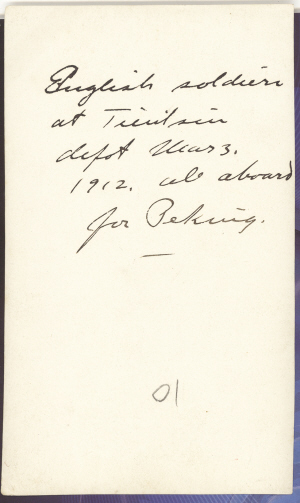 English soldiers
at Tientsin
depot Mar 3.
1912. all aboard
for Peking.
01